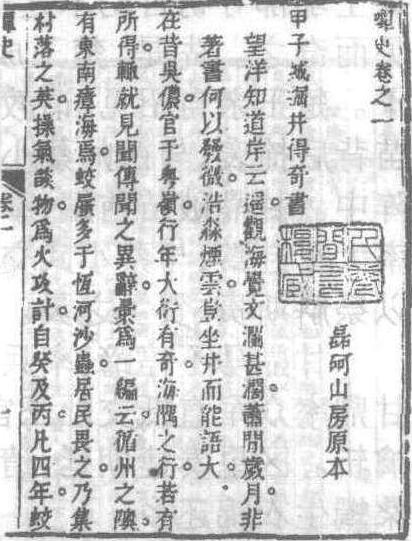 蟫史卷之一
磊砢山房原本
甲子城掘井得奇書
望洋知道岸云遥觀海覺文瀾甚濶蕭閒歲月非
著書何以發微浩淼煙雲豈坐井而能語大。
在昔吳儂官于粤嶺行年大衍有奇海隅之行若有
所得輒就見聞傳聞之異辭彙爲一編云循州之隩
有東南瘴海爲蛟蜃多于恆河沙蟲居民畏之乃集
村落之英操氣燄物爲火攻計自癸及丙凡四年蛟
蟫史
卷一
一